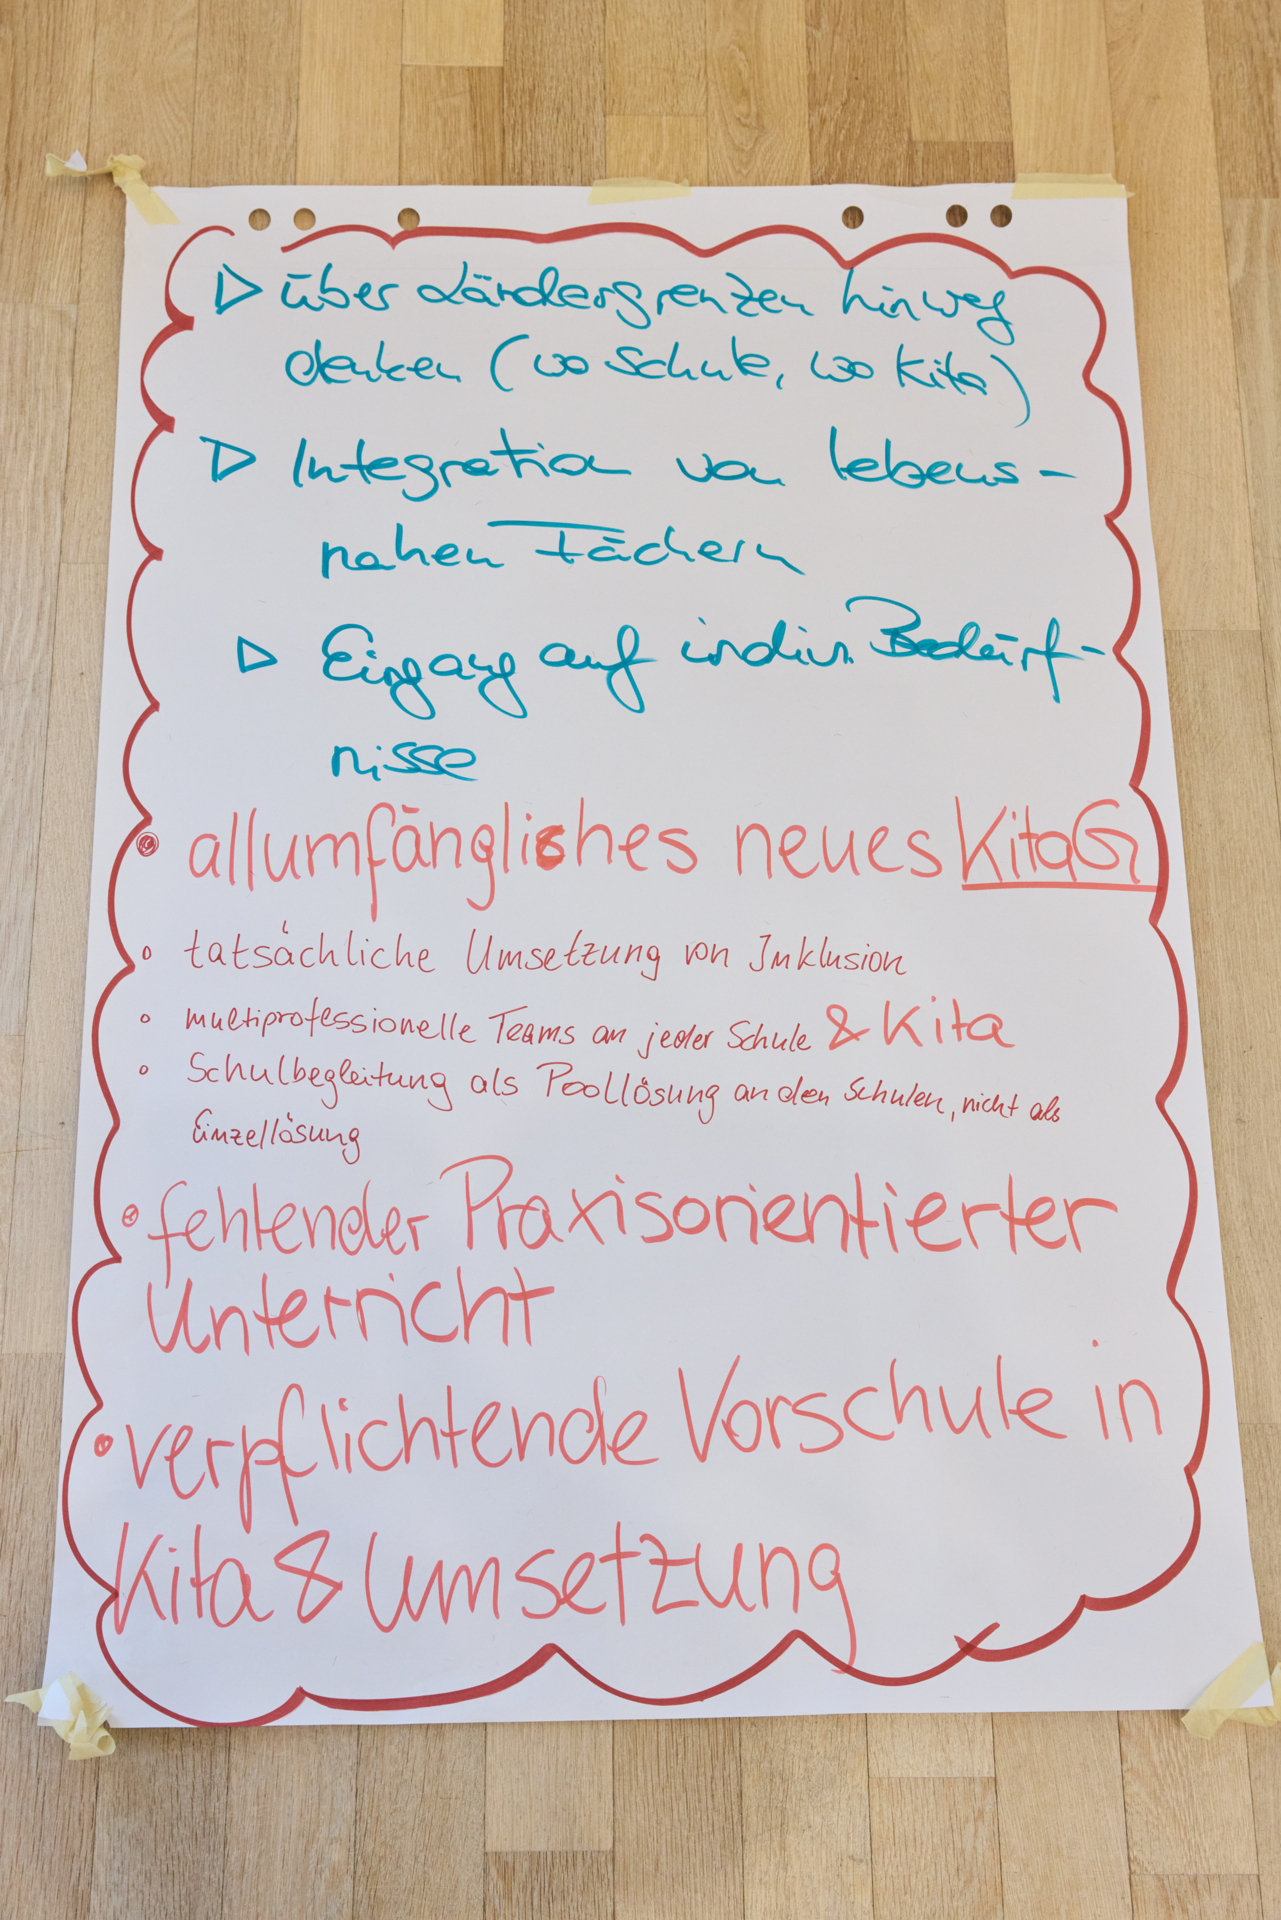 ▷ über Ländergrenzen hinweg
denken (wo Schule, wo Kita)
▷ Integration von lebens-
nahen Fächern
▷ Eingang auf indiv. Bedürf-
nisse
• allumfängliches neues KitaG
◦ tatsächliche Umsetzung von Inklusion
◦ multiprofessionelle Teams an jeder Schule & Kita
◦ Schulbegleitung als Poollösung an den Schulen, nicht als
Einzellösung
• fehlender Praxisorientierter
Unterricht
• verpflichtende Vorschule in
Kita & Umsetzung